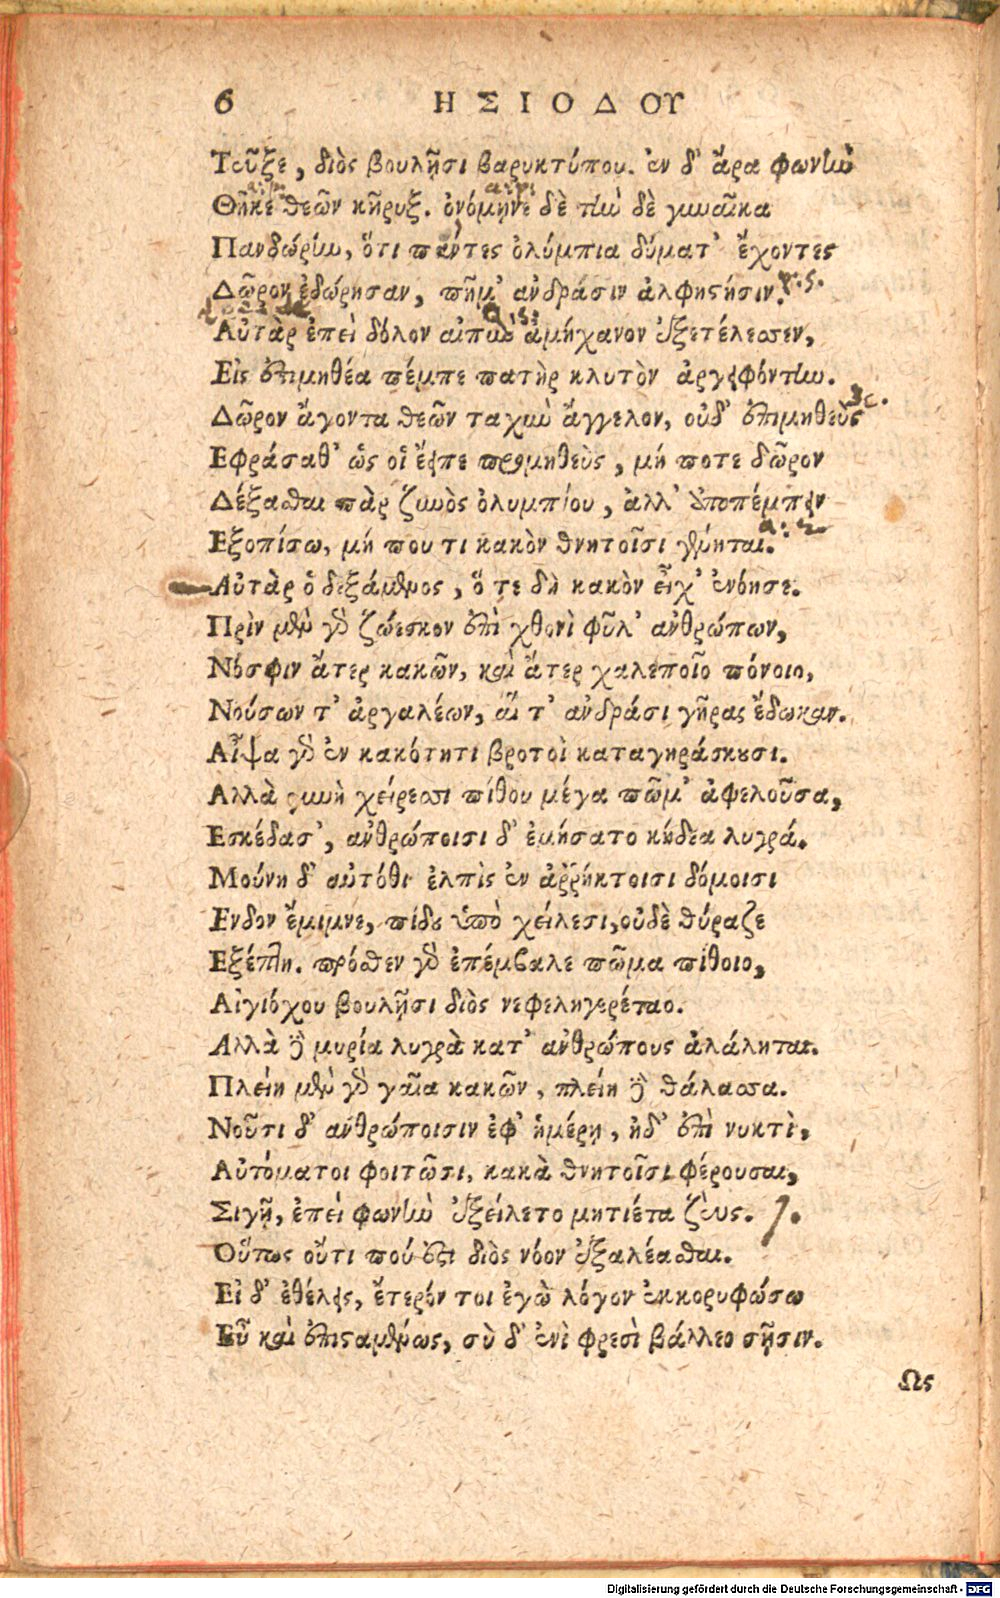 6 ΗΣΙΟΔΟΥ
Τεῦξε, διὸς βουλῇσι βαρυκτύπου. ἐν δ' ἄρα φωνὴν
Θῆκε θεῶν κῆρυξ. ὀνόμηνε δὲ τὴν δὲ γυναῖκα
Πανδώρην, ὅτι πάντες ὀλύμπια δώματ' ἔχοντες
Δῶρον ἐδώρησαν, πῆμ' ἀνδράσιν ἀλφηστῇσιν.
Αὐτὰρ ἐπεὶ δόλον αἰπὺν ἀμήχανον ἐξετέλεσσεν,
Εἰς ἐπιμηθέα πέμπε πατὴρ κλυτὸν ἀργειφόντην.
Δῶρον ἄγοντα θεῶν ταχὺν ἄγγελον, οὐδ' ἐπιμηθεὺς
Εφράσαθ' ὥς οἱ ἔειπε προμηθεὺς, μή ποτε δῶρον
Δέξασθαι πὰρ ζηνὸς ὀλυμπίου, ἀλλ' ἀποπέμπειν
Εξοπίσω, μή που τι κακὸν θνητοῖσι γένηται.
Αὐτὰρ ὁ δεξάμενος, ὅ τε δὴ κακὸν εἶχ' ἐνόησε.
Πρὶν μὲν γὸ ζώεσκον ἐπὶ χθονὶ φῦλ' ἀνθρώπων,
Νόσφιν ἄτερ κακῶν, καὶ ἄτερ χαλεποῖο πόνοιο,
Νούσων τ' ἀργαλέων, αἵ τ' ἀνδράσι γῆρας ἔδωκαν.
Αἶψα γὸ ἐν κακότητι βροτοὶ καταγηράσκουσι.
Αλλὰ γυνὴ χείρεσσι πίθου μέγα πῶμ' ἀφελοῦσα,
Εσκέδασ', ἀνθρώποισι δ' ἐμήσατο κήδεα λυγρά.
Μούνη δ' αὐτόθι ἐλπὶς ἐν ἀῤῥήκτοισι δόμοισι
Ενδον ἔμιμνε, πίθου ὑπὸ χείλεσι, οὐδὲ θύραζε
Εξέπτη. πρόσθεν γὸ ἐπέμβαλε πῶμα πίθοιο,
Αἰγιόχου βουλῇσι διὸς νεφεληγερέταο.
Αλλὰ δὲ μυρία λυγρὰ κατ' ἀνθρώπους ἀλάληται.
Πλείη μὲν γὸ γαῖα κακῶν, πλείη δὲ θάλασσα.
Νοῦσοι δ' ἀνθρώποισιν ἐφ' ἡμέρῃ, ἠδ' ἐπὶ νυκτὶ,
Αὐτόματοι φοιτῶσι, κακὰ θνητοῖσι φέρουσαι,
Σιγῇ, ἐπεὶ φωνὴν ἐξείλετο μητιέτα ζεύς.
Οὕτως οὔτι πού ἐστι διὸς νόον ἐξαλέασθαι.
Εἰ δ' ἐθέλεις, ἕτερόν τοι ἐγὼ λόγον ἐκκορυφώσω
Εὖ καὶ ἐπισταμένως, σὺ δ' ἐνὶ φρεσὶ βάλλεο σῇσιν.
Ως
Digitalisierung gefördert durch die Deutsche Forschungsgemeinschaft - DFG